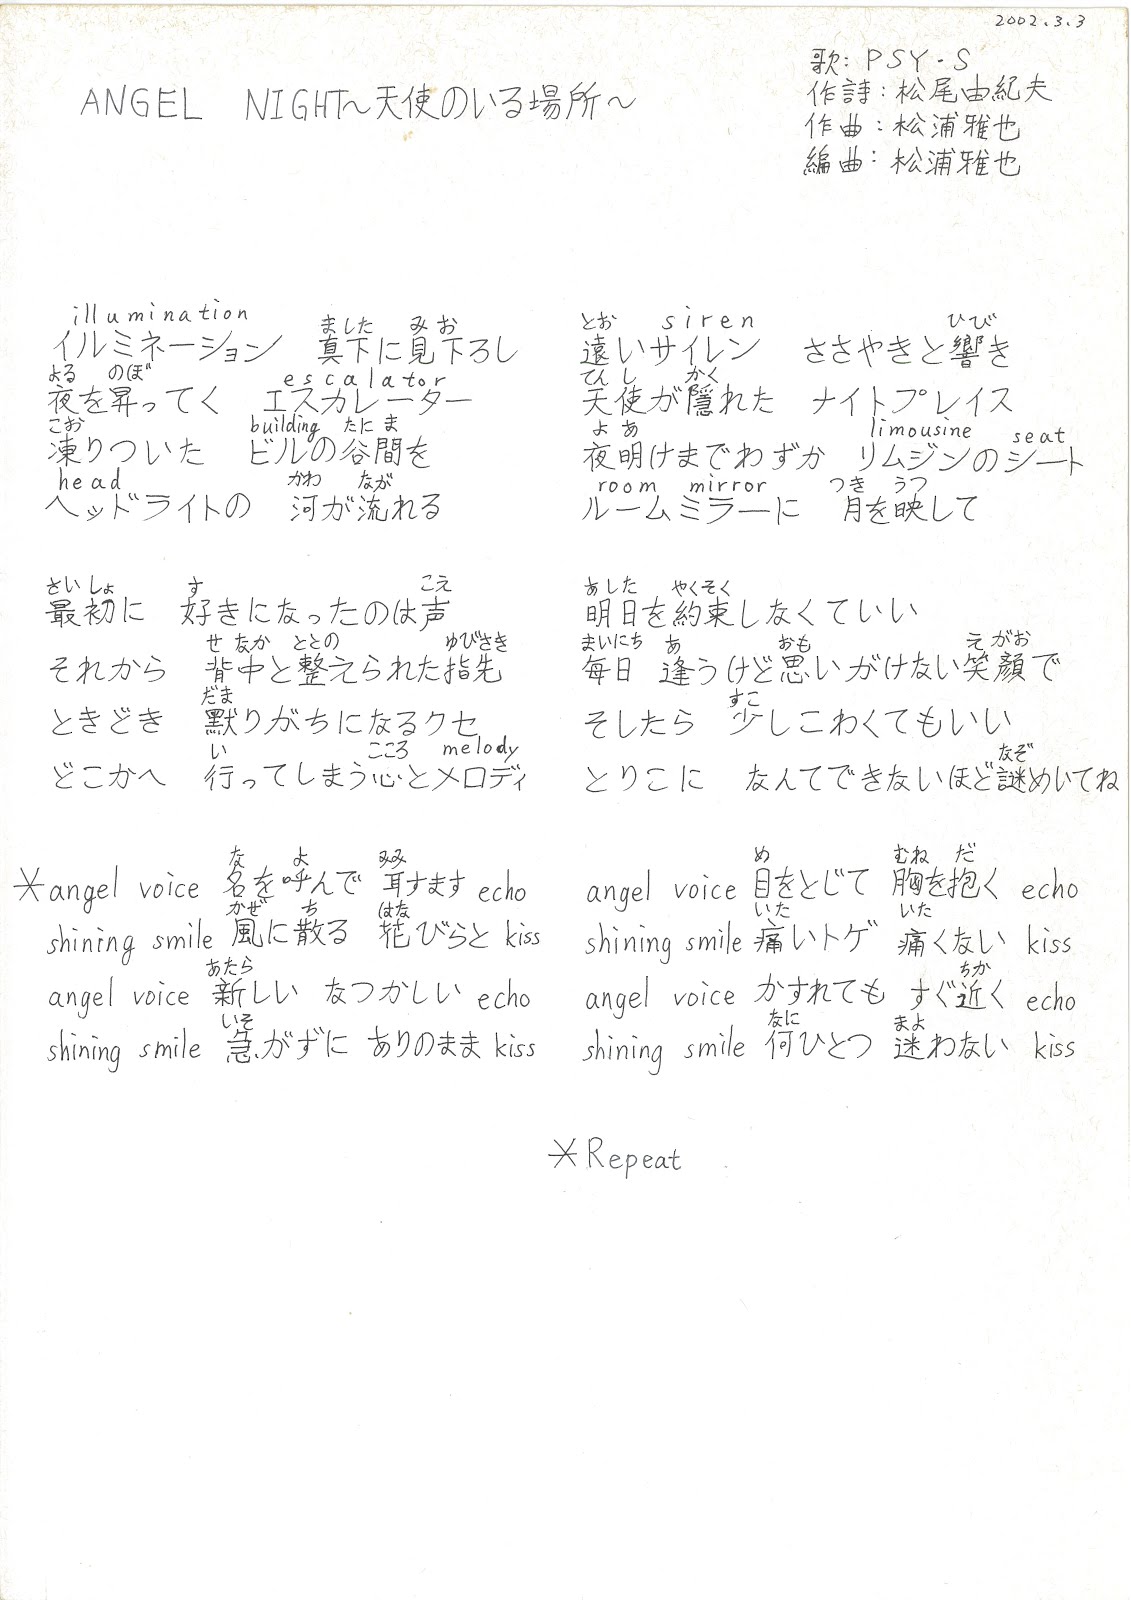 2002.3.3
歌: PSY・S
作詩: 松尾由紀夫
作曲: 松浦雅也
編曲: 松浦雅也
ANGEL NIGHT～天使のいる場所～
illumination ました みお
イルミネーション 真下に見下ろし
よる のぼ escalator
夜を昇ってく エスカレーター
こお building たにま
凍りついた ビルの谷間を
head かわ なが
ヘッドライトの 河が流れる
さいしょ す こえ
最初に 好きになったのは声
せなか ととの ゆびさき
それから 背中と整えられた指先
だま
ときどき 黙りがちになるクセ
い こころ melody
どこかへ 行ってしまう心とメロディ
な よ みみ
＊angel voice 名を呼んで 耳すます echo
かぜ ち はな
shining smile 風に散る 花びらと kiss
あたら
angel voice 新しい なつかしい echo
いそ
shining smile 急がずに ありのまま kiss
とお siren ひび
遠いサイレン ささやきと響き
てんし かく
天使が隠れた ナイトプレイス
よあ limousine seat
夜明けまでわずか リムジンのシート
room mirror つき うつ
ルームミラーに 月を映して
あした やくそく
明日を約束しなくていい
まいにち あ おも えがお
毎日 逢うけど思いがけない笑顔で
すこ
そしたら 少しこわくてもいい
なぞ
とりこに なんてできないほど謎めいてね
め むね だ
angel voice 目をとじて 胸を抱く echo
いた いた
shining smile 痛いトゲ 痛くない kiss
ちか
angel voice かすれても すぐ近く echo
なに まよ
shining smile 何ひとつ 迷わない kiss
＊Repeat